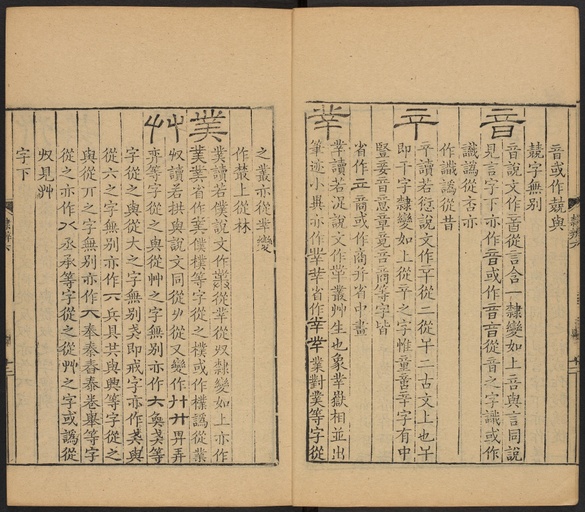 音或作競與
競字無別
音
音說文作音從言含一隸變如上音與言同說
見言字下亦作音或作音從音之字識或作
譌從杏亦
作識譌從昔
䇂
䇂讀若愆說文作䇂從二從干二古文上也䇂
即干字隸變如上從䇂之字惟童䇂字有中
豎妾音意章竟音商等字皆
省作立音或作商并省中畫
丵
丵讀若浞說文作丵叢艸生也象丵嶽相並出
筆迹小異亦作丵丵省作業對菐等字從
之叢亦從丵變
作叢上從林
菐
菐讀若僕說文作菐從丵從𠬞隸變如上亦作
菐省作僕樸等字從之樸或作檏譌從業
𠬞
𠬞讀若拱與說文同從又變作廾廾畀弄
齊等字從之與從艸之字無別亦作大奐等
字從之與從大之字無別即戒字亦作與
從六之字無別亦作兵具共與興等字從之
與從丌之字無別亦作秦奉舂泰卷舉等字
從之亦作丞承等字從之從艸之字或譌從
𠬞見艸
字下